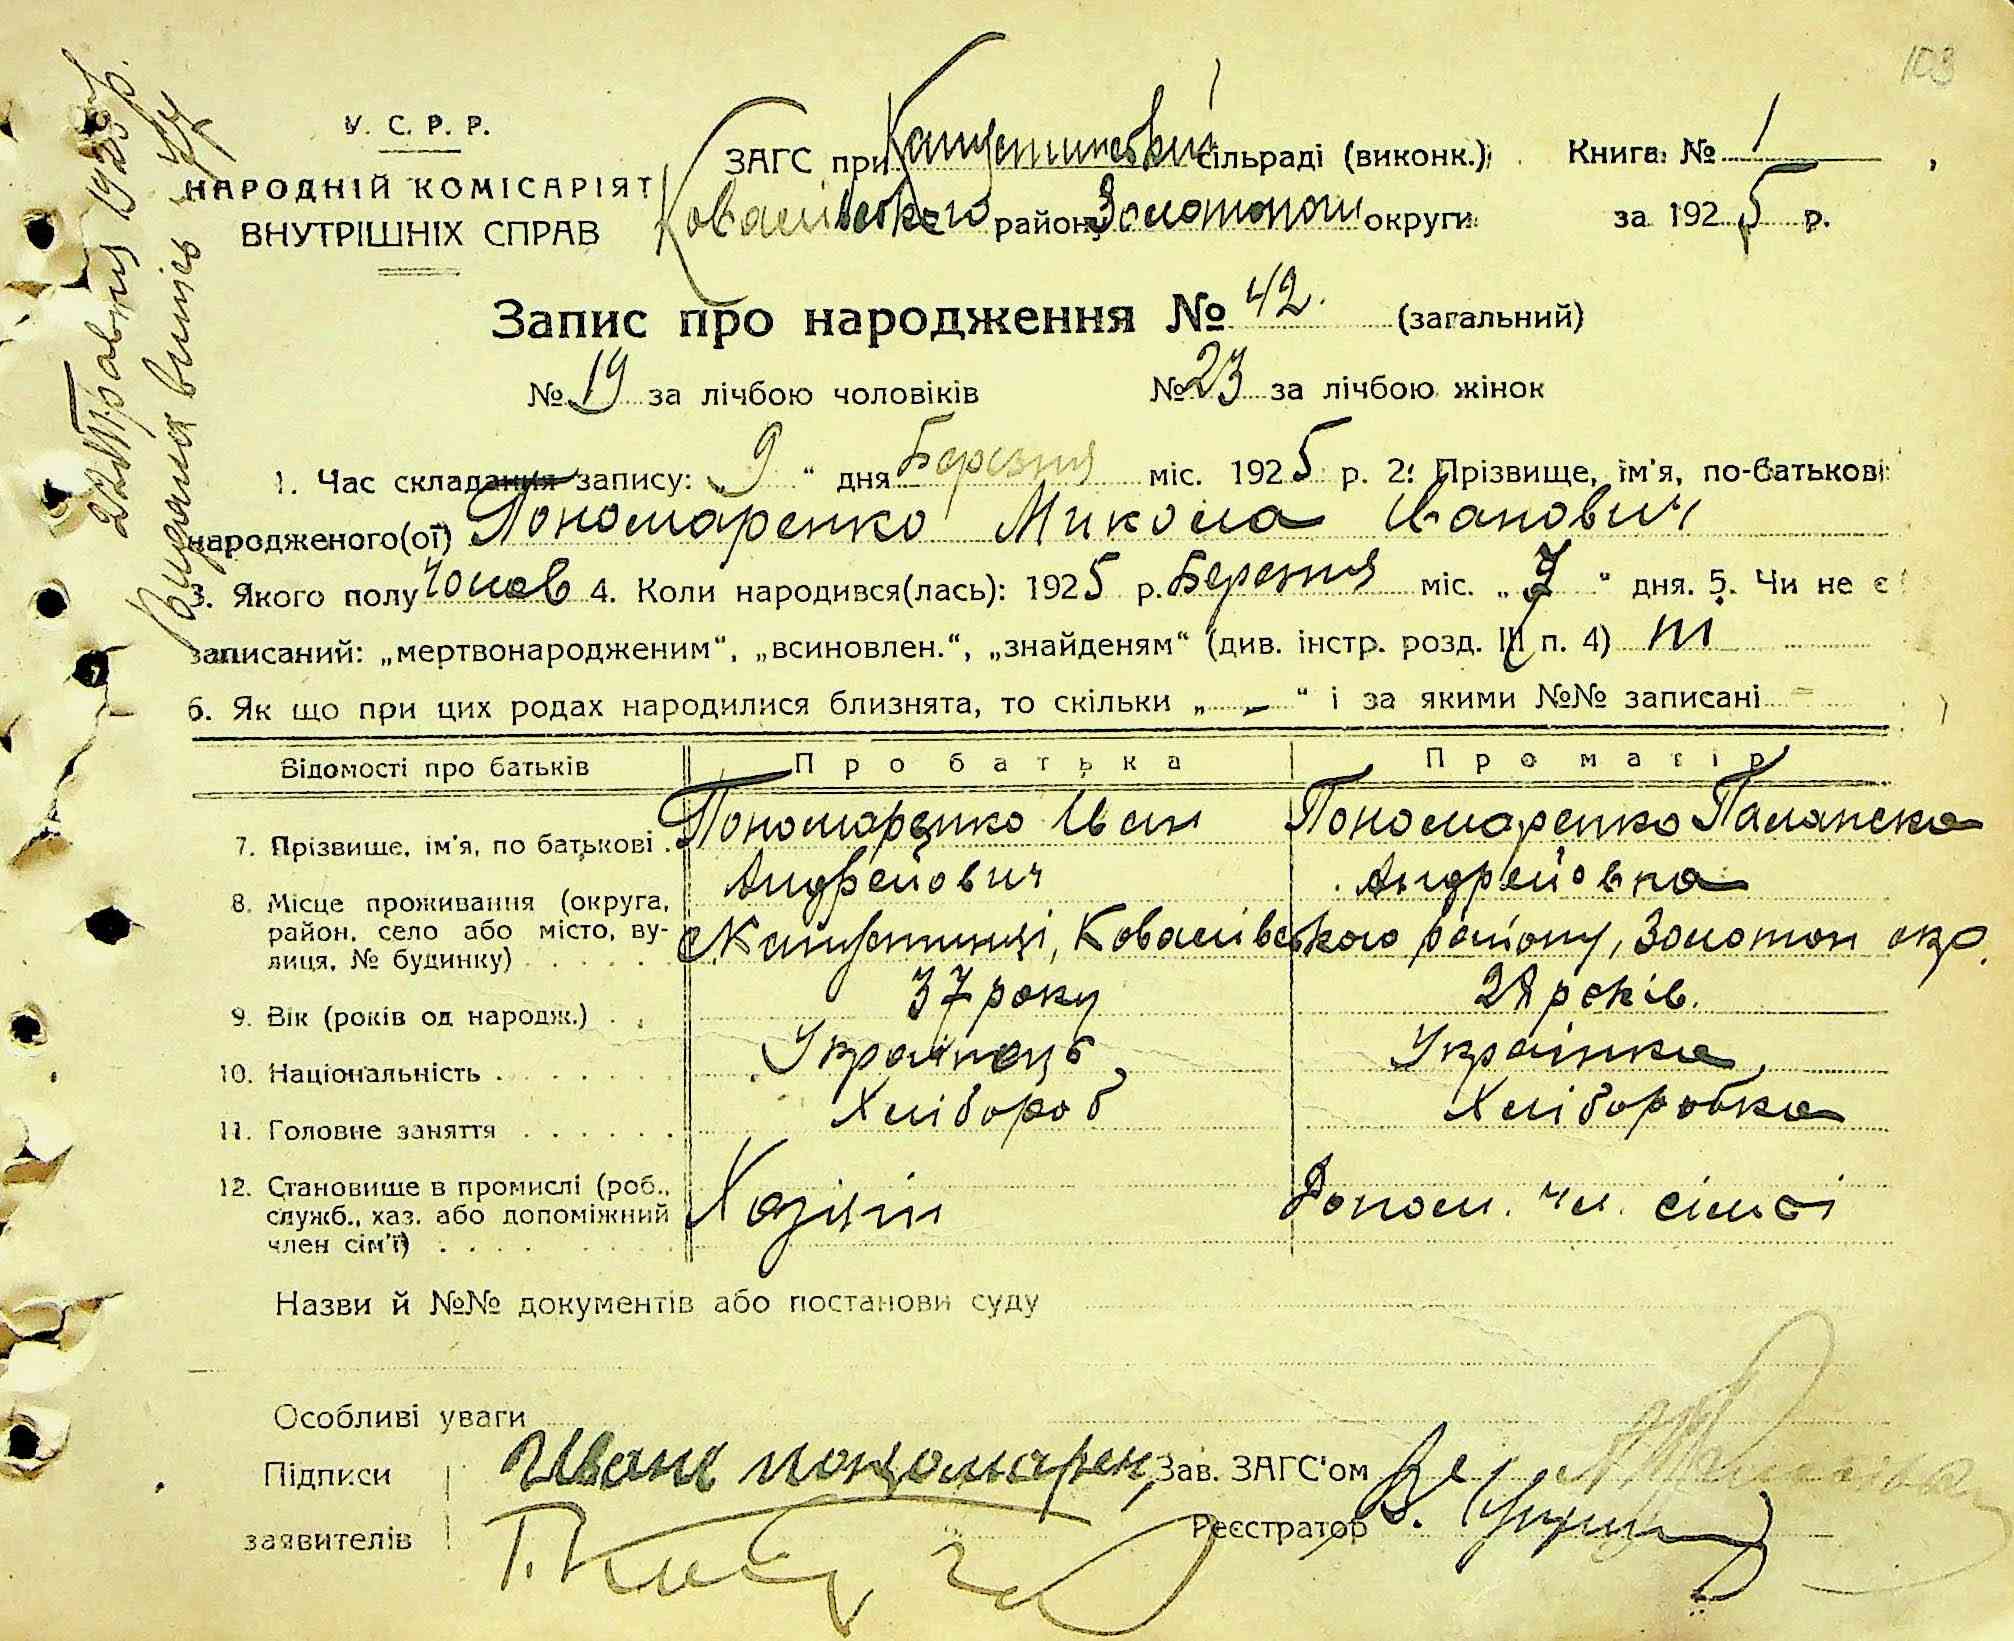 103
22 Травня 1925 р.
Видана випись
У. С. Р. Р.
НАРОДНІЙ КОМІСАРІЯТ
ВНУТРІШНІХ СПРАВ
ЗАГС при Капустинський сільраді (виконк.)
Ковалівського району Золотонош округи
Книга № 1
за 1925 р.
Запис про народження № 42. (загальний)
№ 19 за лічбою чоловіків № 23 за лічбою жінок
1. Час складання запису: „9“ дня Березня міс. 1925 р. 2. Прізвище, ім'я, по-батькові
народженого(ої) Пономаренко Микола Иванович
3. Якого полу чолов 4. Коли народився(лась): 1925 р. Березня міс. „7“ дня. 5. Чи не є
записаний: „мертвонародженим“, „всиновлен.“, „знайденям“ (див. інстр. розд. III п. 4) ні
6. Як що при цих родах народилися близнята, то скільки „ – “ і за якими №№ записані –
Відомості про батьків Про батька Про матір
7. Прізвище, ім'я, по батькові . Пономаренко Иван Пономаренко Паланска
Андрейович Андрейовна
8. Місце проживання (округа,
район, село або місто, ву-
лиця, № будинку) . . . . . с Капустинці, Ковалівського району, Золотон окр.
9. Вік (років од народж.) . . 37 року 28 років.
10. Національність . . . . . . Українець Українка
11. Головне заняття . . . . . . Хлібороб Хліборобка
12. Становище в промислі (роб.,
служб., хаз. або допоміжний
член сім'ї) . . . . Хазяін Допом. чл. сімьі
Назви й №№ документів або постанови суду
Особливі уваги
Підписи Иване пономарен Зав. ЗАГС'ом
заявителів Реєстратор